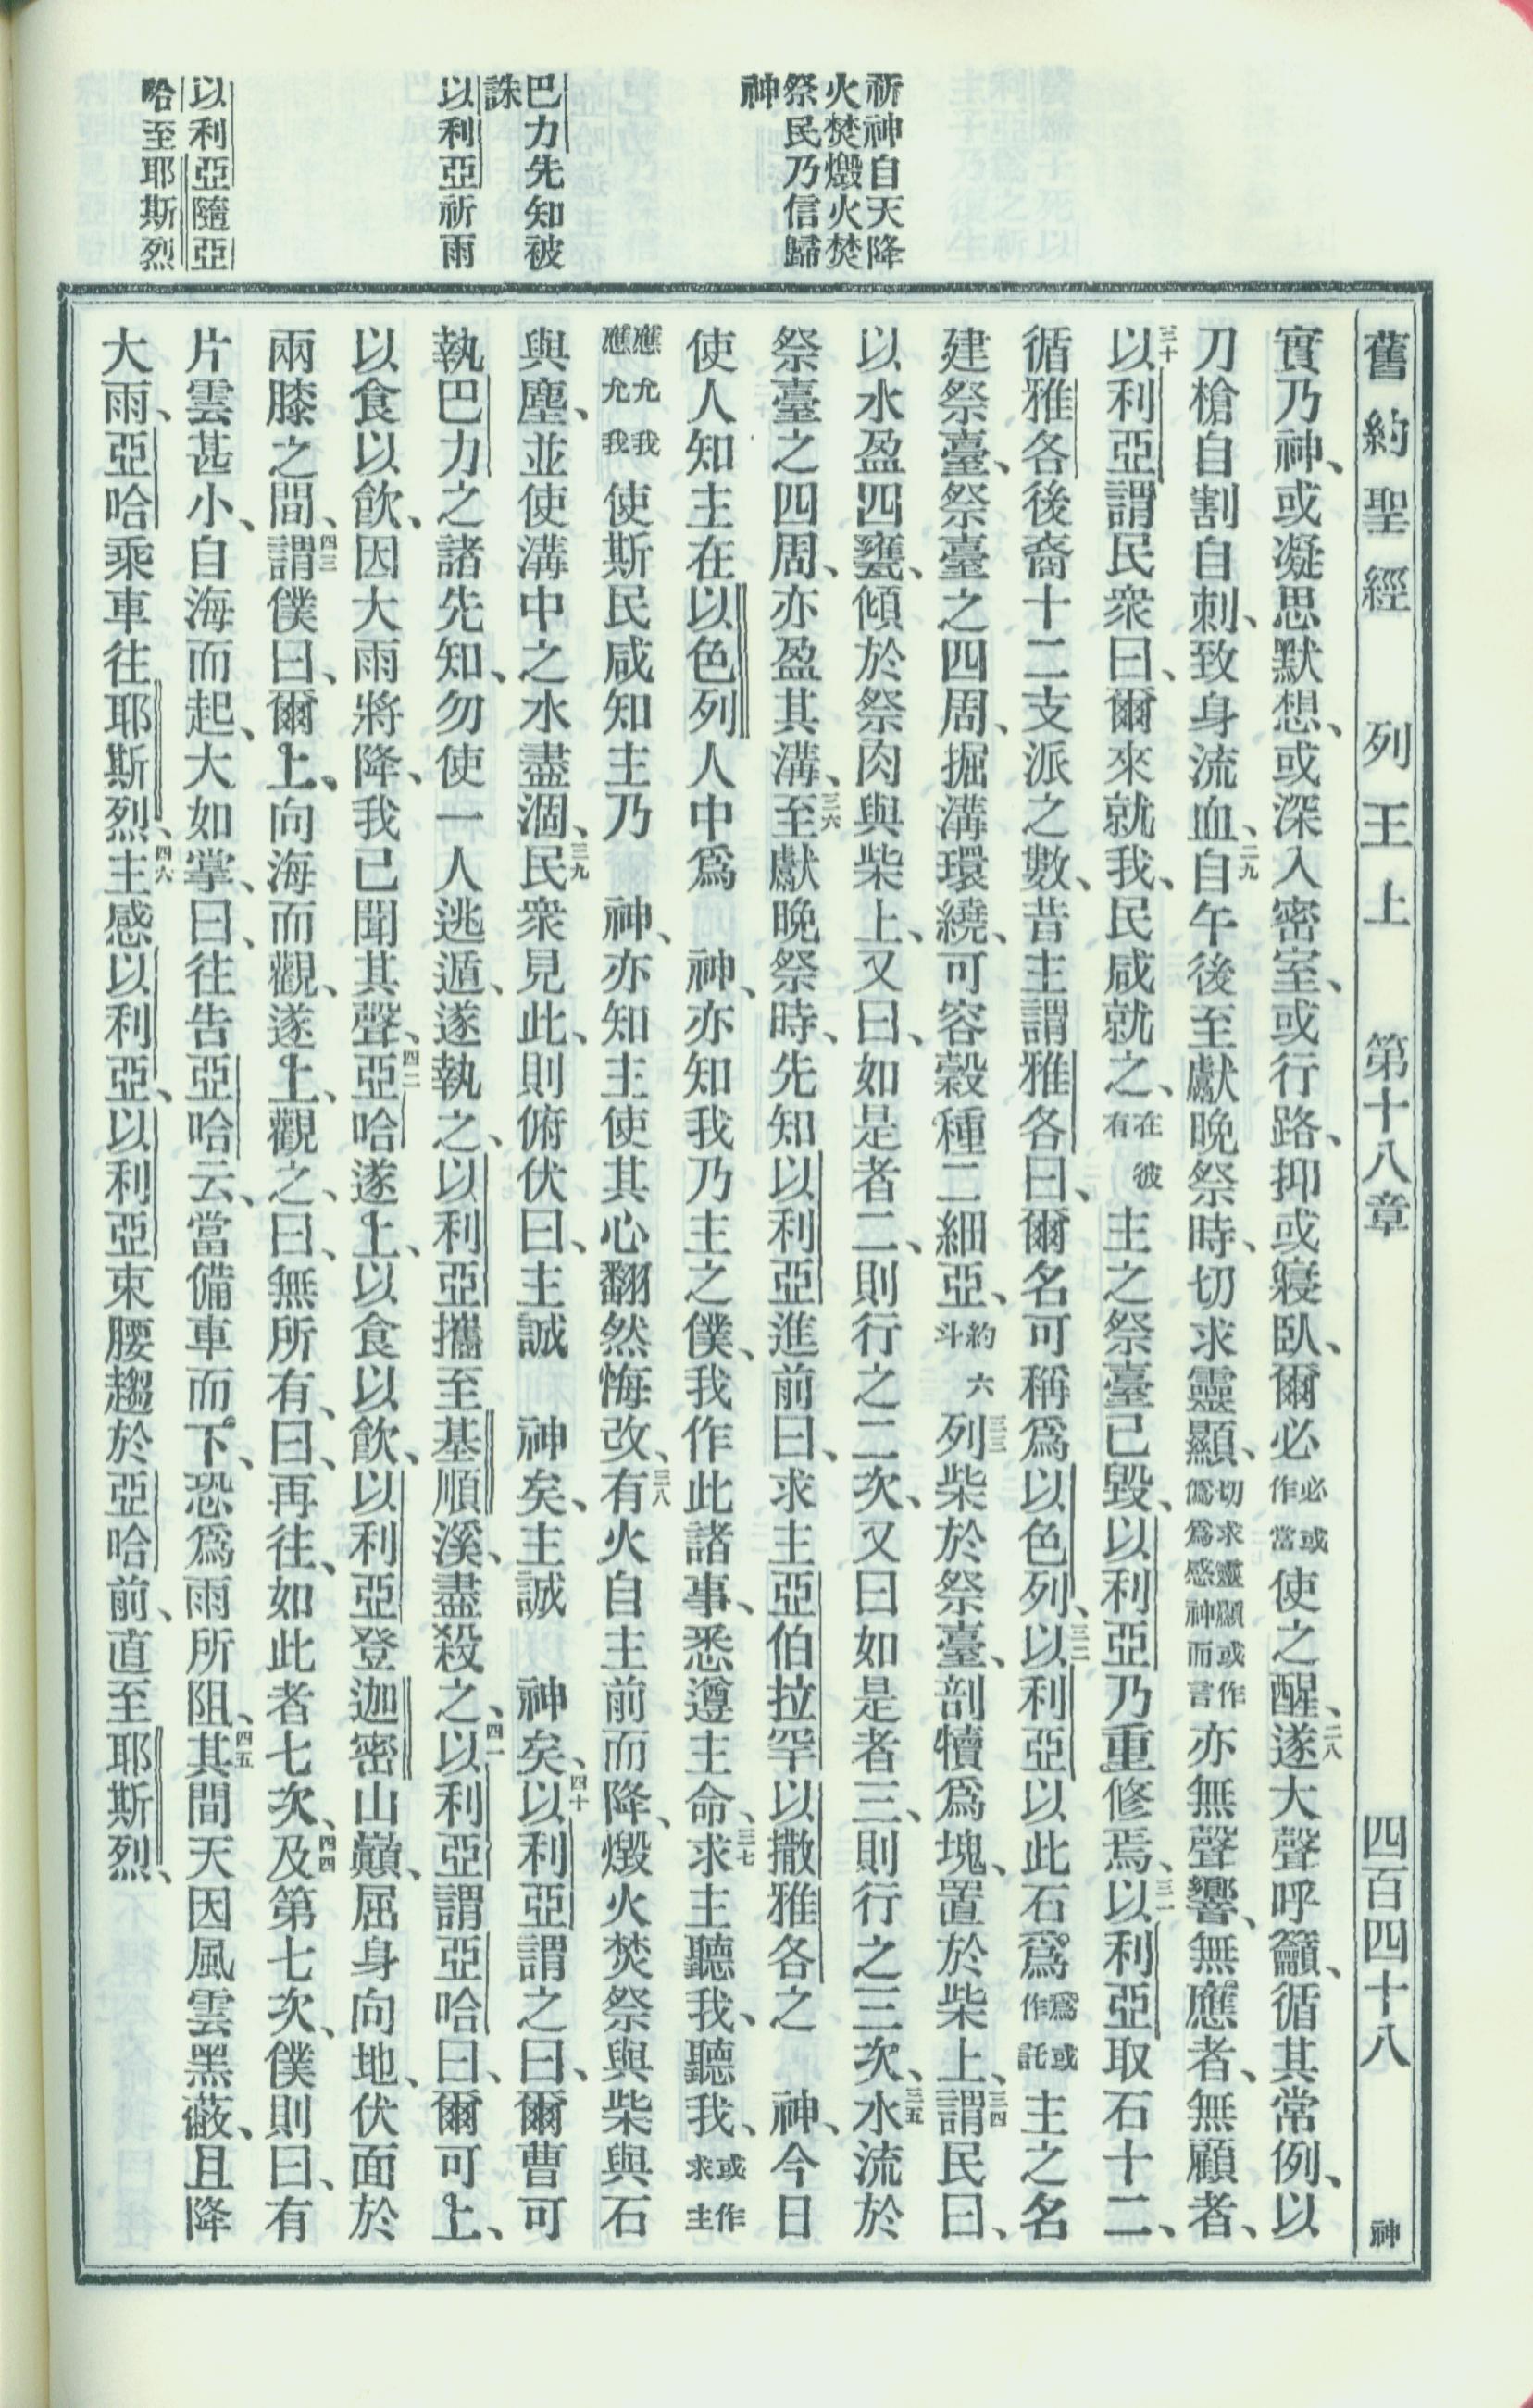 舊約聖經 列王上 第十八章 四百四十八 神
祈神自天降
火焚燬火焚
祭民乃信歸
神
巴力先知被
誅
以利亞祈雨
以利亞隨亞
哈至耶斯烈
實乃神、或凝思默想、或深入密室、或行路、抑或寢臥、爾必必或作當使之醒、二八遂大聲呼籲、循其常例、以
刀槍自割自刺、致身流血、二九自午後至獻晚祭時、切求靈顯、切求靈顯或作僞爲感神而言亦無聲響、無應者、無顧者、
三十以利亞謂民衆曰、爾來就我、民咸就之、在彼有主之祭臺已毀、以利亞乃重修焉、三一以利亞取石十二、
循雅各後裔十二支派之數、昔主謂雅各曰、爾名可稱爲以色列、三二以利亞以此石爲爲或作託主之名
建祭臺、祭臺之四周、掘溝環繞、可容穀種二細亞、約六斗三三列柴於祭臺、剖犢爲塊、置於柴上、三四謂民曰、
以水盈四甕、傾於祭肉與柴上、又曰、如是者二、則行之二次、又曰如是者三、則行之三次、三五水流於
祭臺之四周、亦盈其溝、三六至獻晚祭時、先知以利亞進前曰、求主亞伯拉罕以撒雅各之 神、今日
使人知主在以色列人中爲 神、亦知我乃主之僕、我作此諸事、悉遵主命、三七求主聽我、聽我、或作求主
應允我應允我使斯民咸知主乃 神、亦知主使其心翻然悔改、三八有火自主前而降、燬火焚祭與柴與石
與塵、並使溝中之水盡涸、三九民衆見此、則俯伏曰、主誠 神矣、主誠 神矣、四十以利亞謂之曰、爾曹可
執巴力之諸先知、勿使一人逃遁、遂執之、以利亞攜至基順溪、盡殺之、四一以利亞謂亞哈曰、爾可上、
以食以飲、因大雨將降、我已聞其聲、四二亞哈遂上、以食以飲、以利亞登迦密山巔、屈身向地、伏面於
兩膝之間、四三謂僕曰、爾上、向海而觀、遂上、觀之、曰、無所有、曰、再往、如此者七次、四四及第七次、僕則曰、有
片雲甚小、自海而起、大如掌、曰、往告亞哈云、當備車而下、恐爲雨所阻、四五其間天因風雲黑蔽、且降
大雨、亞哈乘車往耶斯烈、四六主感以利亞、以利亞束腰趨於亞哈前、直至耶斯烈、